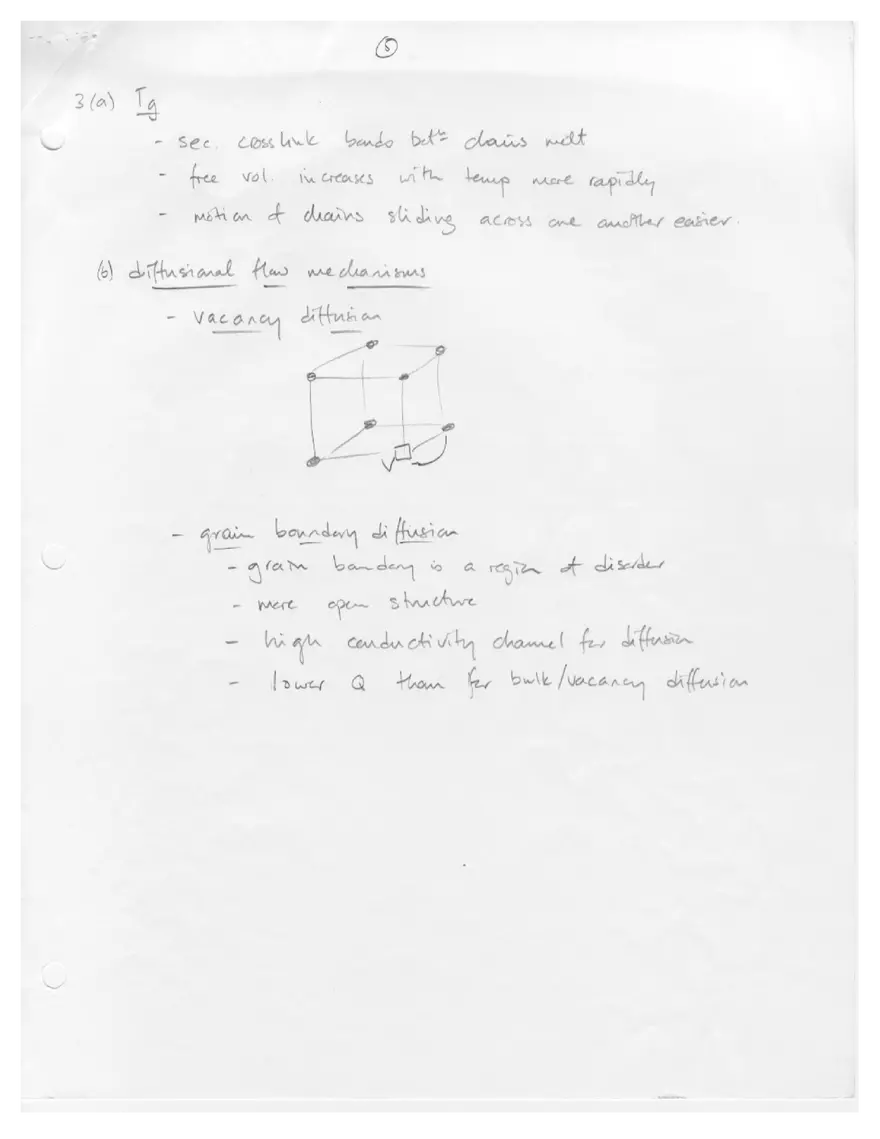 5
3(a) Tg
- sec. crosslink bonds betⁿ chains melt
- free vol. increases with temp more rapidly
- motion of chains sliding across one another easier.
(b) diffusional flow mechanisms
- vacancy diffusion
- grain boundary diffusion
- grain boundary is a region of disorder
- more open structure
- high conductivity channel for diffusion
- lower Q than for bulk/vacancy diffusion